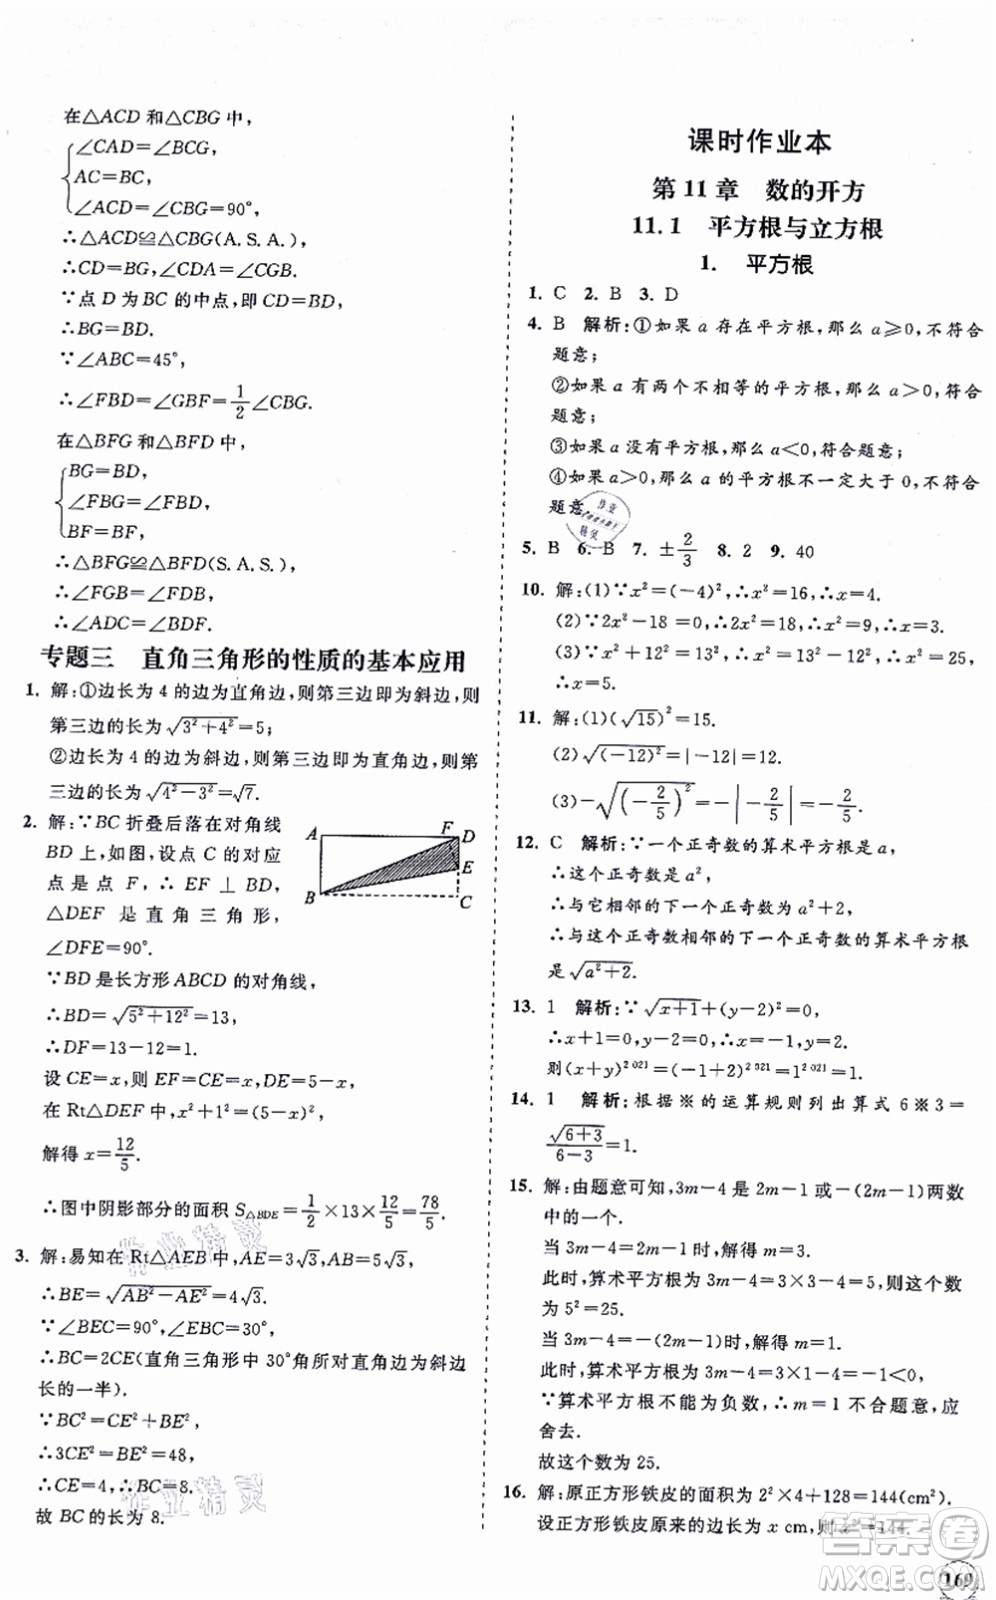 在△ACD 和△CBG 中,
∠CAD=∠BCG,
AC=BC,
∠ACD=∠CBG=90°,
∴△ACD≌△CBG(A.S.A.)
∴CD=BG,∠CDA=∠CGB.
∵点 D 为 BC 的中点,即 CD=BD,
∴BG=BD.
∵∠ABC=45°,
∴∠FBD=∠GBF=1/2∠CBG.
在△BFG 和△BFD 中,
BG=BD,
∠FBG=∠FBD,
BF=BF,
∴△BFG≌△BFD(S.A.S.)
∴∠FGB=∠FDB,
∴∠ADC=∠BDF.
专题三 直角三角形的性质的基本应用
1. 解:①边长为 4 的边为直角边,则第三边即为斜边,则
第三边的长为√(3²+4²)=5;
②边长为 4 的边为斜边,则第三边即为直角边,则第
三边的长为√(4²-3²)=√7.
2. 解:∵BC 折叠后落在对角线
BD 上,如图,设点 C 的对应
点是点 F,∴EF⊥BD,
△DEF 是直角三角形,
∠DFE=90°.
A F D E B C
∵BD 是长方形 ABCD 的对角线,
∴BD=√(5²+12²)=13,
∴DF=13-12=1.
设 CE=x,则 EF=CE=x,DE=5-x.
在 Rt△DEF 中,x²+1²=(5-x)²,
解得 x=12/5.
∴图中阴影部分的面积 S△BDE=1/2×13×12/5=78/5.
3. 解:易知在 Rt△AEB 中,AE=3√3,AB=5√3,
∴BE=√(AB²-AE²)=4√3.
∵∠BEC=90°,∠EBC=30°,
∴BC=2CE(直角三角形中 30°角所对直角边为斜边
长的一半).
∵BC²=CE²+BE²,
∴3CE²=BE²=48,
∴CE=4,∴BC=8.
故 BC 的长为 8.
课时作业本
第 11 章 数的开方
11.1 平方根与立方根
1. 平方根
1. C 2. B 3. D
4. B 解析:①如果 a 存在平方根,那么 a≥0,不符合
题意;
②如果 a 有两个不相等的平方根,那么 a>0,符合
题意;
③如果 a 没有平方根,那么 a<0,符合题意;
④如果 a>0,那么 a 的平方根不一定大于 0,不符合
题意.
5. B 6. B 7. ±2/3 8. 2 9. 40
10. 解:(1)∵x²=(-4)²=16,∴x²=16,∴x=±4.
(2)∵2x²-18=0,∴2x²=18,∴x²=9,∴x=±3.
(3)∵x²+(-13)=12,∴x²-13=12,∴x²=25,
∴x=±5.
11. 解:(1)(√15)²=15.
(2)√(-12)²=|-12|=12.
(3)-√(-2/5)²=-|-2/5|=-2/5.
12. C 解析:∵一个正奇数的算术平方根是 a,
∴这个正奇数是 a²,
∴与它相邻的下一个正奇数为 a²+2,
∴与这个正奇数相邻的下一个正奇数的算术平方根
是√(a²+2).
13. 1 解析:∵√(x+1)+(y-2)²=0,
∴x+1=0,y-2=0,∴x=-1,y=2.
则(x+y)²⁰²¹=(-1+2)²⁰²¹=1²⁰²¹=1.
14. 1 解析:根据※的运算规则列出算式 6※3=
√(6+3)/(6-3)=1.
15. 解:由题意可知,3m-4 是 2m-1 或-(2m-1)两数
中的一个.
当 3m-4=2m-1 时,解得 m=3.
此时,算术平方根为 3m-4=3×3-4=5,则这个数
为 5²=25.
当 3m-4=-(2m-1)时,解得 m=1.
此时,算术平方根为 3m-4=3×1-4=-1.
∵算术平方根不能为负数,∴m=1 不合题意,应
舍去.
故这个数为 25.
16. 解:原正方形铁皮的面积为 2²×4+128=144(cm²).
设正方形铁皮原来的边长为 x cm,则 x²=144.
169
作业
精灵
作业精灵
作业精灵
答案圈
MXQE.COM